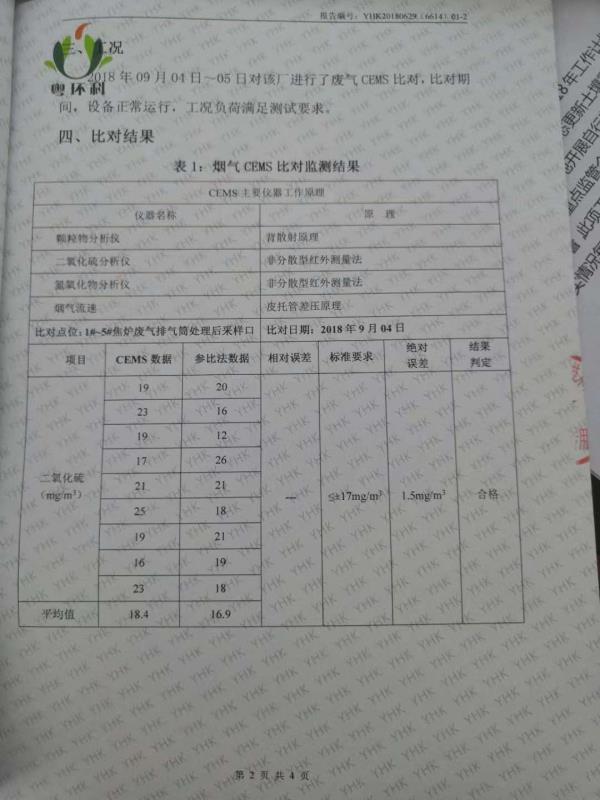 报告编号：YHK20180629（6614）01-2
三、工况
粤环科
2018年09月04日～05日对该厂进行了废气CEMS比对，比对期
间，设备正常运行，工况负荷满足测试要求。
四、比对结果
表1：烟气CEMS比对监测结果
CEMS主要仪器工作原理
仪器名称 原 理
颗粒物分析仪 背散射原理
二氧化硫分析仪 非分散型红外测量法
氮氧化物分析仪 非分散型红外测量法
烟气流速 皮托管差压原理
比对点位：1#~5#焦炉废气排气筒处理后采样口 比对日期：2018年9月04日
项目 CEMS数据 参比法数据 相对误差 标准要求 绝对误差 结果判定
19 20
23 16
19 12
17 26
二氧化硫（mg/m³） 21 21 — ≤±17mg/m³ 1.5mg/m³ 合格
25 18
19 21
16 19
23 18
平均值 18.4 16.9
第 2 页 共 4 页